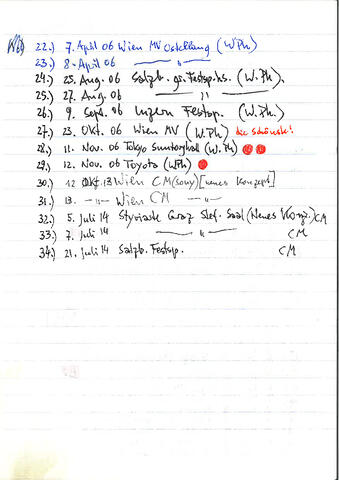 22.) 7. April 06 Wien MV Osterklang (WPh)
23.) 8. April 06 —— " ——
24.) 25. Aug. 06 Salzb. gr. Festsp.hs. (W.Ph).
25.) 27. Aug. 06 —— " ——
26.) 9. Sept. 06 Luzern Festsp. (W.Ph.)
27.) 23. Okt. 06 Wien MV (W.Ph) die schönste!
28.) 11. Nov. 06 Tokyo Suntoryhall (W.Ph)
29.) 12. Nov. 06 Toyota (WPh)
30.) 12 Okt. 13 Wien CM (Sony) [neues Konzept]
31.) 13. — " — Wien CM — " —
32.) 5. Juli 14 Styriarte Graz Stef. Saal (Neues Konz.) CM
33.) 7. Juli 14 —— " —— CM
34.) 21. Juli 14 Salzb. Festsp. CM